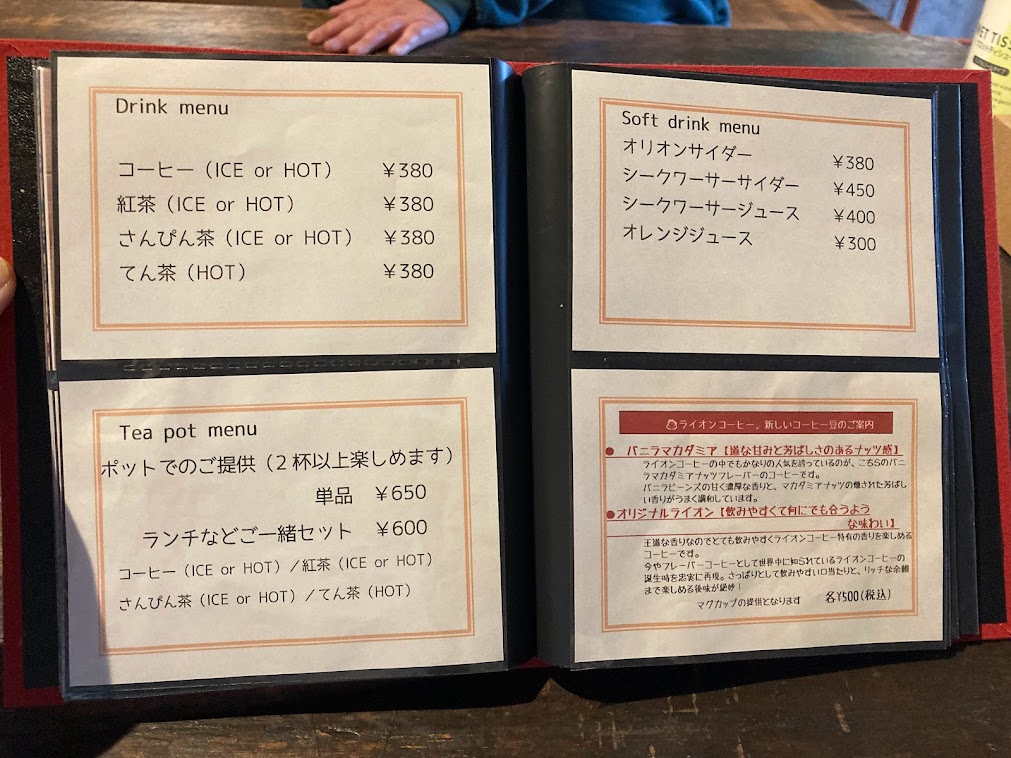 Drink menu
コーヒー（ICE or HOT） ￥380
紅茶（ICE or HOT） ￥380
さんぴん茶（ICE or HOT） ￥380
てん茶（HOT） ￥380
Tea pot menu
ポットでのご提供（2杯以上楽しめます）
単品 ￥650
ランチなどご一緒セット ￥600
コーヒー（ICE or HOT）／紅茶（ICE or HOT）
さんぴん茶（ICE or HOT）／てん茶（HOT）
Soft drink menu
オリオンサイダー ￥380
シークワーサーサイダー ￥450
シークワーサージュース ￥400
オレンジジュース ￥300
ライオンコーヒー。新しいコーヒー豆のご案内
● バニラマカダミア【道な甘みと芳ばしさのあるナッツ感】
ライオンコーヒーの中でもかなりの人気を誇っているのが、こちらのバニ
ラマカダミアナッツフレーバーのコーヒーです。
バニラビーンズの甘く濃厚な香りと、マカダミアナッツの燻された芳ばし
い香りがうまく調和しています。
●オリジナルライオン【飲みやすくて何にでも合うよう
な味わい】
王道な香りなのでとても飲みやすくライオンコーヒー特有の香りを楽しめる
コーヒーです。
今やフレーバーコーヒーとして世界中に知られているライオンコーヒーの
誕生時を忠実に再現。さっぱりとして飲みやすい口当たりと、リッチな余韻
まで楽しめる後味が絶妙！
マグカップの提供となります 各¥500(税込)
WET TISS